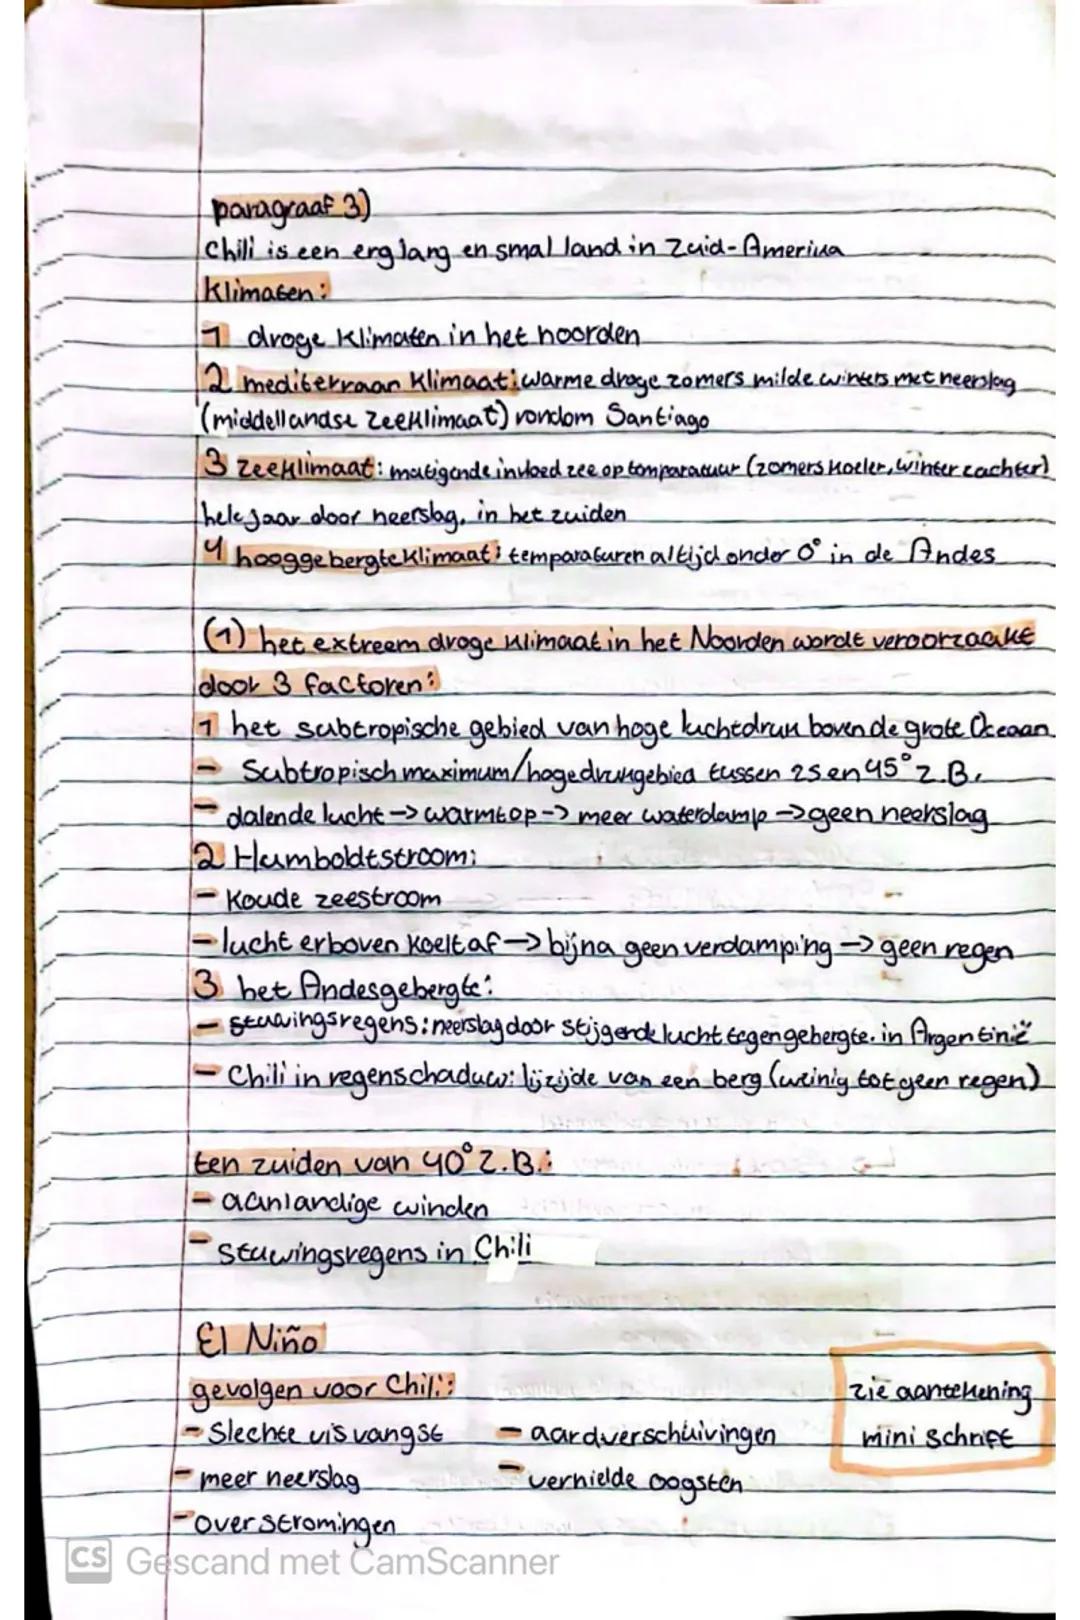 paragraaf 3)
Chili is een erg lang en smal land in Zuid-Amerika
Klimaten:
1 droge klimaten in het noorden
2 mediterraan klimaat: warme droge zomers milde winters met neerslag
(middellandse zeeklimaat) rondom Santiago
3 zeeklimaat: matigende invloed zee op temparatuur (zomers koeler, winter zachter)
hele jaar door neerslag, in het zuiden
4 hooggebergteklimaat: temparaturen altijd onder 0° in de Andes
(1) het extreem droge klimaat in het Noorden wordt veroorzaakt
door 3 factoren:
1 het subtropische gebied van hoge luchtdruk boven de grote Oceaan
- Subtropisch maximum/hogedrukgebied tussen 25 en 45° Z.B.
- dalende lucht -> warmt op -> meer waterdamp -> geen neerslag
2 Humboldtstroom:
- Koude zeestroom
- lucht erboven koelt af -> bijna geen verdamping -> geen regen
3 het Andesgebergte:
- stuwingsregens: neerslag door stijgende lucht tegen gebergte. in Argentinië
- Chili in regenschaduw: lijzijde van een berg (weinig tot geen regen)
ten zuiden van 40° Z.B.:
- aanlandige winden
- stuwingsregens in Chili
El Niño
gevolgen voor Chili:
- Slechte visvangst
- meer neerslag
- overstromingen
- aardverschuivingen
- vernielde oogsten
zie aantekening
mini schrift
CS Gescand met CamScanner